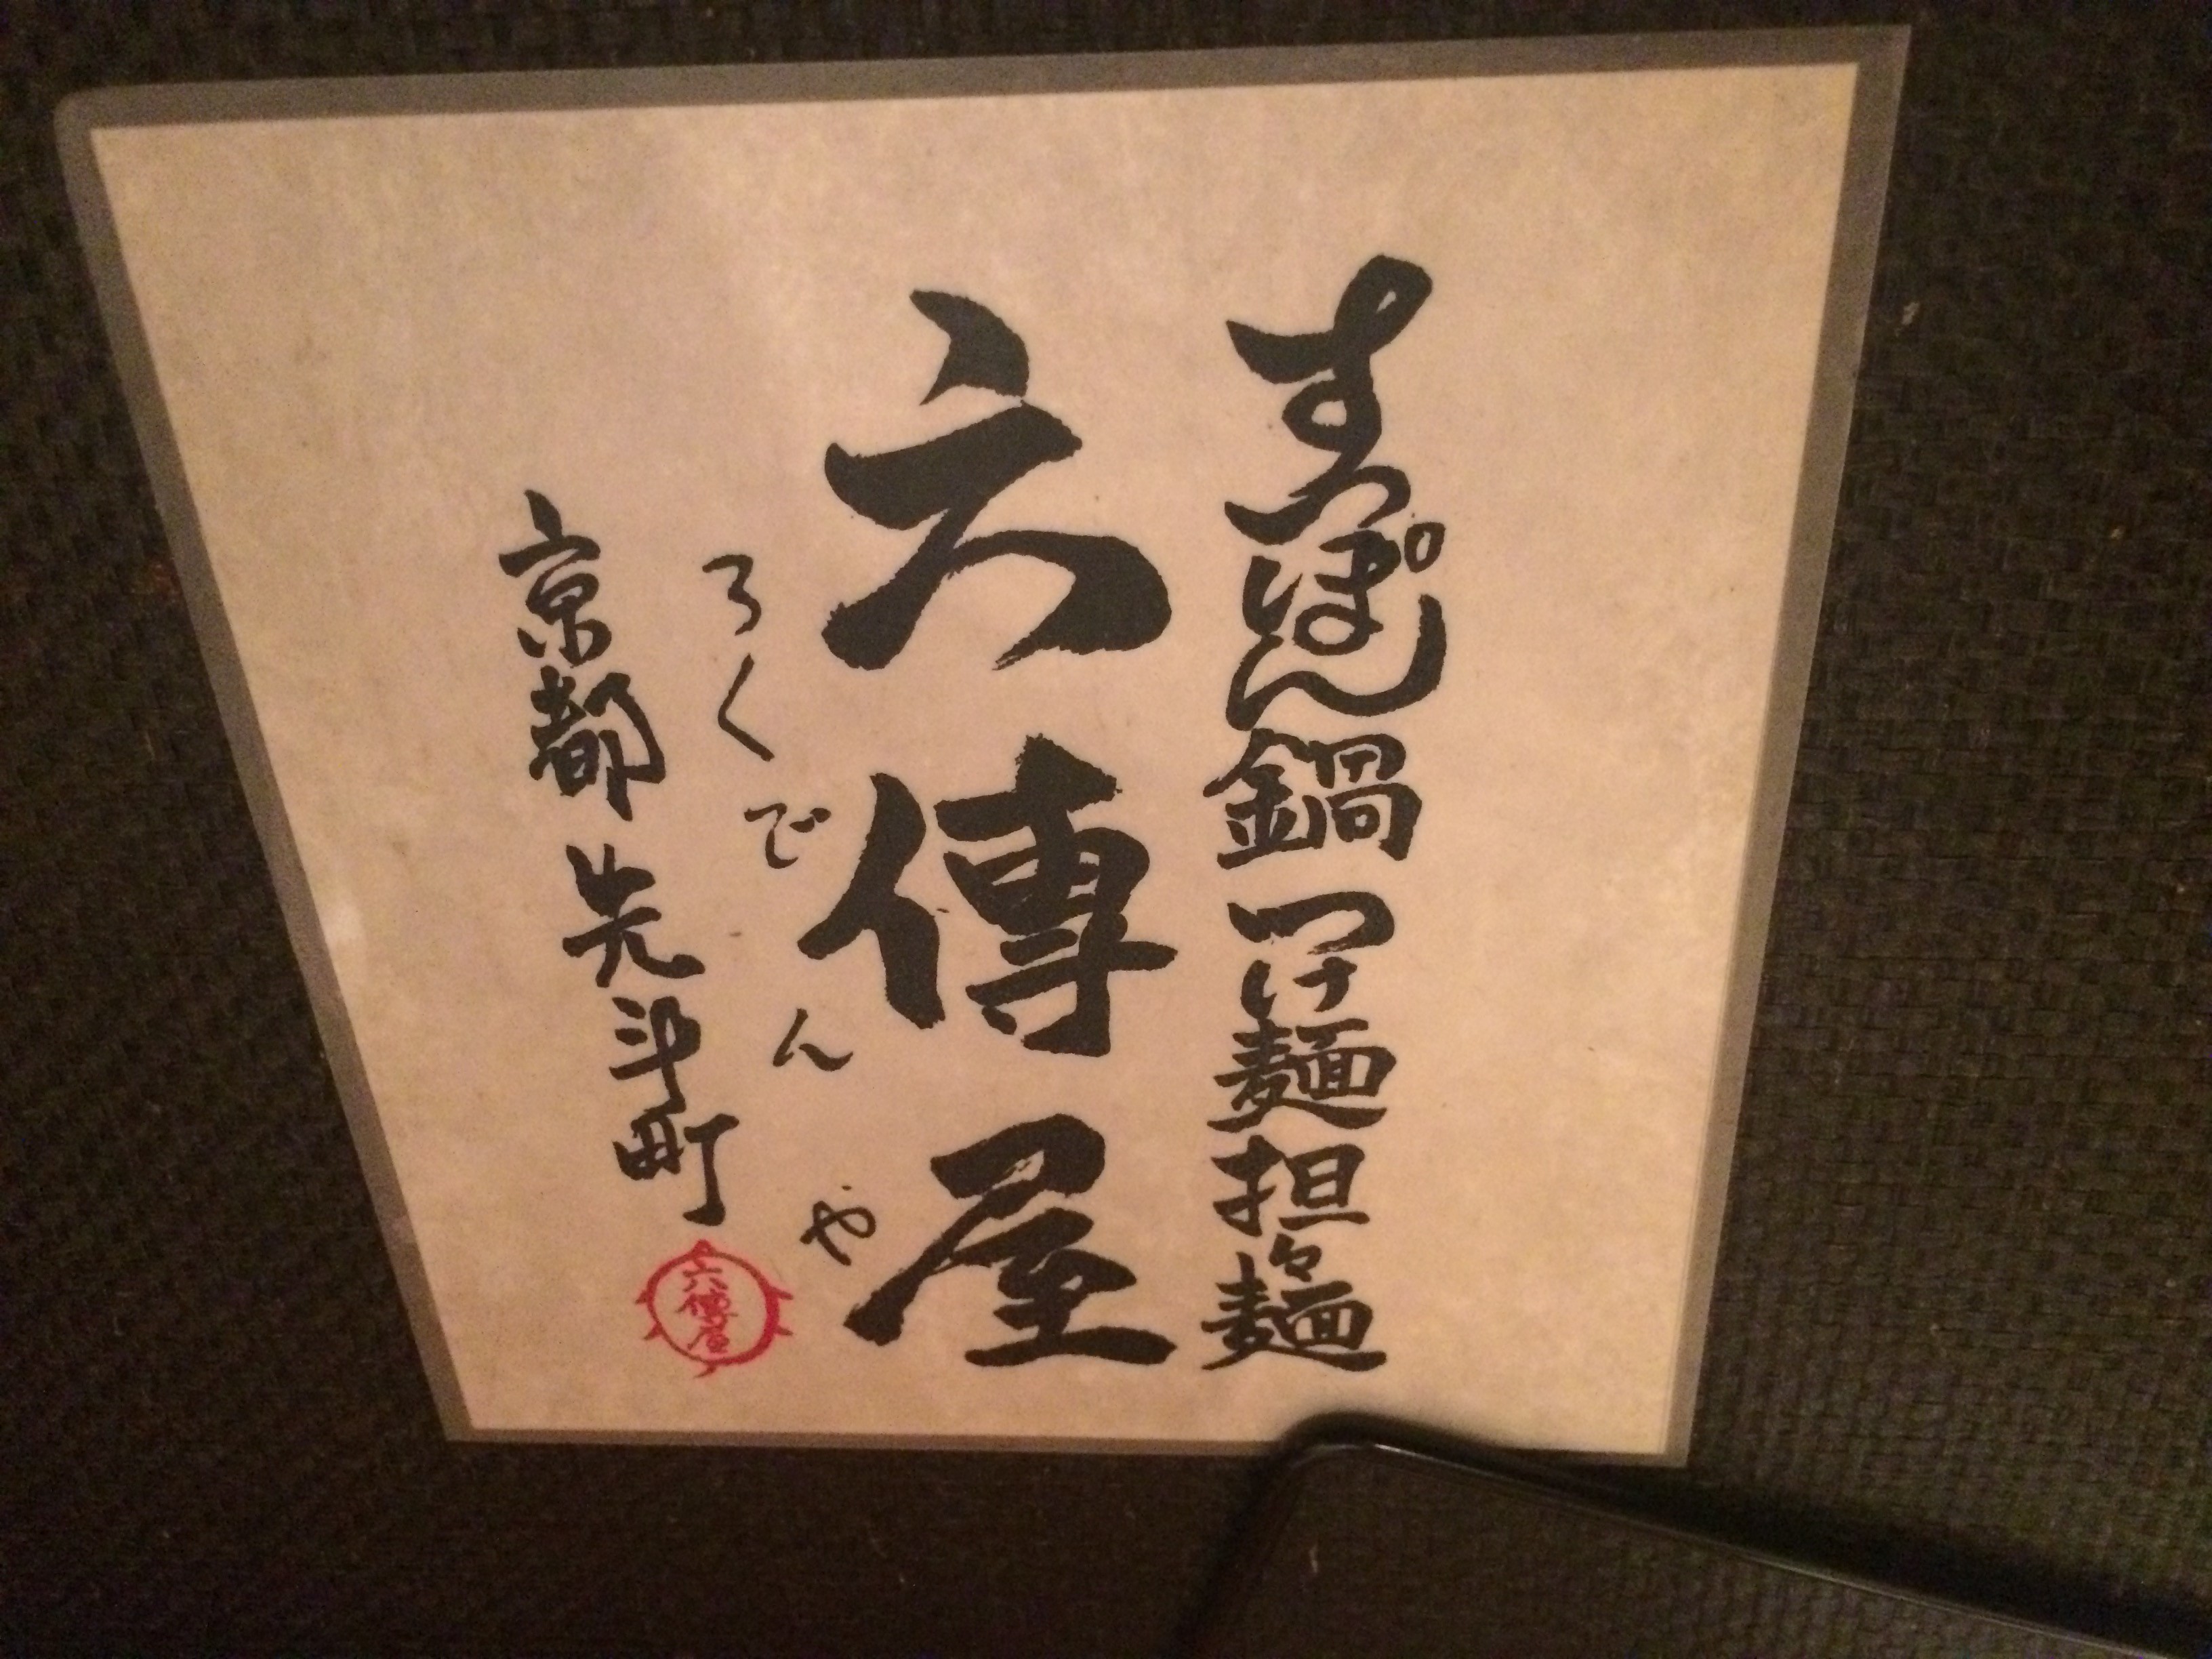 すっぽん鍋 つけ麺 担々麺
六傳屋
ろくでんや
京都 先斗町
六傳屋